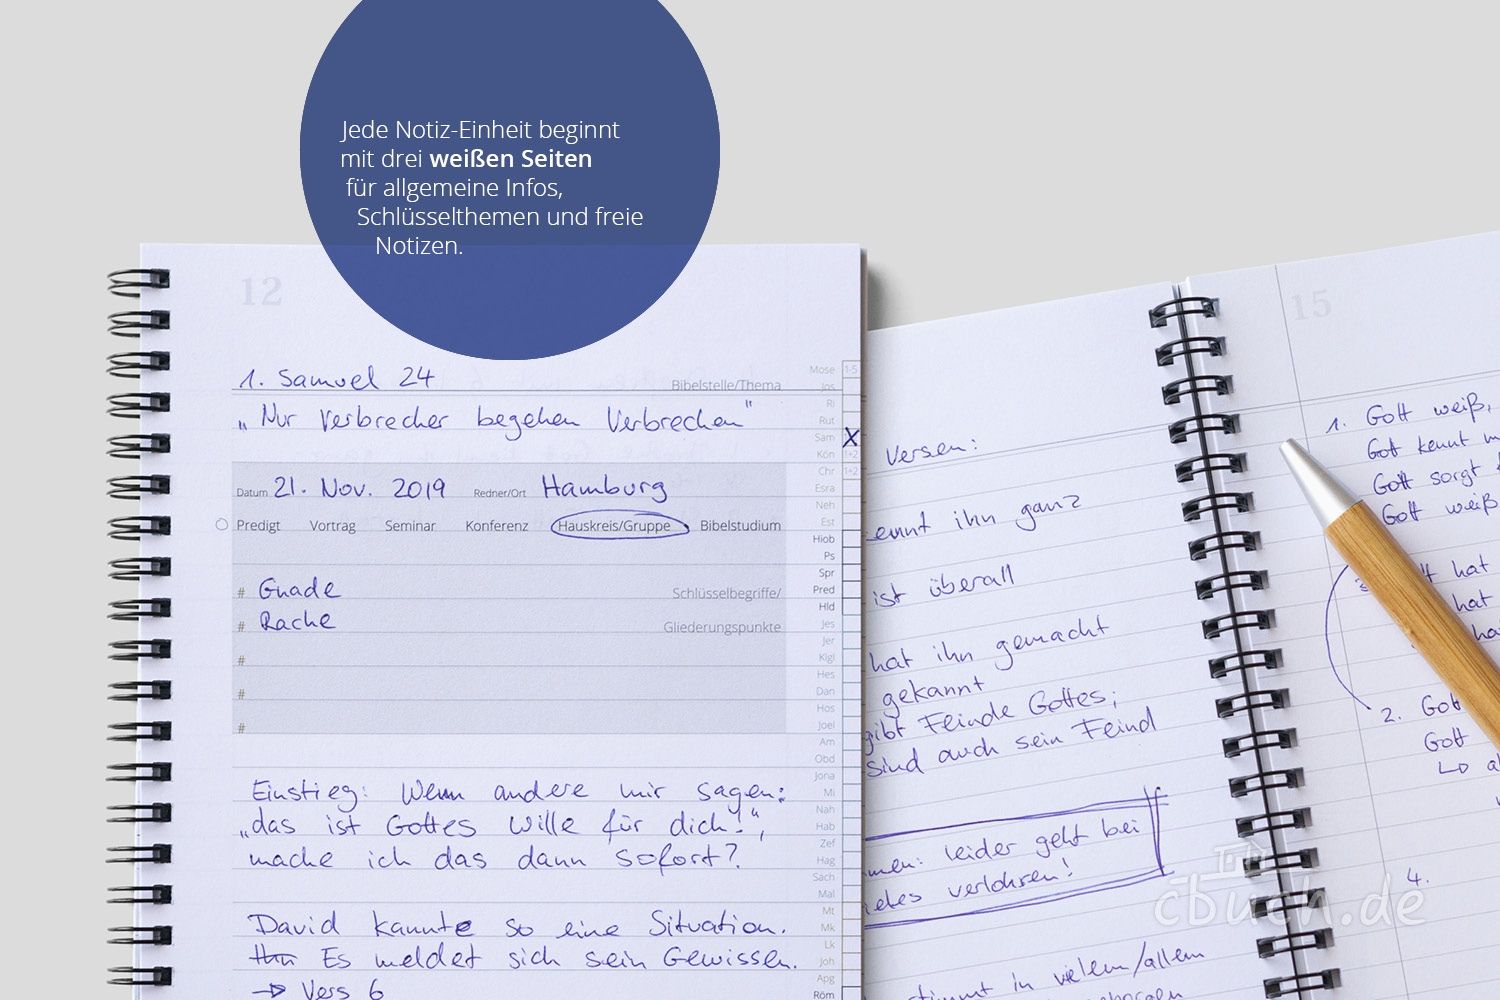 Jede Notiz-Einheit beginnt
mit drei weißen Seiten
für allgemeine Infos,
Schlüsselthemen und freie
Notizen.
12
1. Samuel 24
Bibelstelle/Thema
„Nur Verbrecher begehen Verbrechen"
Datum 21. Nov. 2019 Redner/Ort Hamburg
Predigt Vortrag Seminar Konferenz Hauskreis/Gruppe Bibelstudium
# Gnade Schlüsselbegriffe/
# Rache Gliederungspunkte
#
#
#
Einstieg: Wenn andere mir sagen:
„das ist Gottes Wille für dich!",
mache ich das dann sofort?
David kannte so eine Situation.
Ihn Es meldet sich sein Gewissen.
→ Vers 6
Mose 1-5
Jos
Ri
Rut
Sam X
Kön 1+2
Chr 1+2
Esra
Neh
Est
Hiob
Ps
Spr
Pred
Hld
Jes
Jer
Klgl
Hes
Dan
Hos
Joel
Am
Obd
Jona
Mi
Nah
Hab
Zef
Hag
Sach
Mal
Mt
Mk
Lk
Joh
Apg
Röm
versen:
ennt ihn ganz
ist überall
hat ihn gemacht
gekannt
gibt Feinde Gottes;
sind auch sein Feind
men: leider geht bei
verlohren!
stimmt in vielem/allem
15
1. Gott weiß,
Gott kennt
Gott sorgt
Gott weiß
hat
hat
2. Gott
Gott
4.
cbuch.de